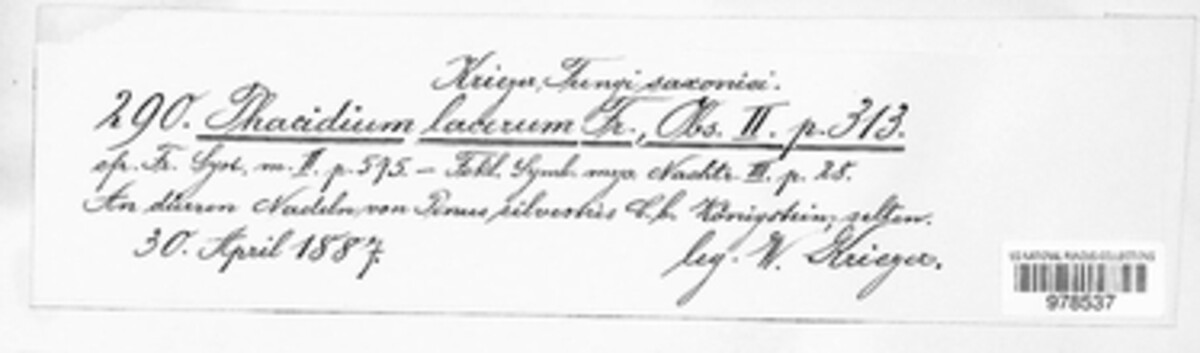 Krieger, Fungi saxonici.
290. Phacidium lacerum Fr., Obs. II. p. 313.
cfr. Fr. Syst. m. II. p. 575. — Fckl. Symb. myc. Nachtr. III. p. 28.
An dürren Nadeln von Pinus silvestris b. Königstein; selten.
30. April 1887. leg. W. Krieger.
US NATIONAL FUNGUS COLLECTIONS
978537